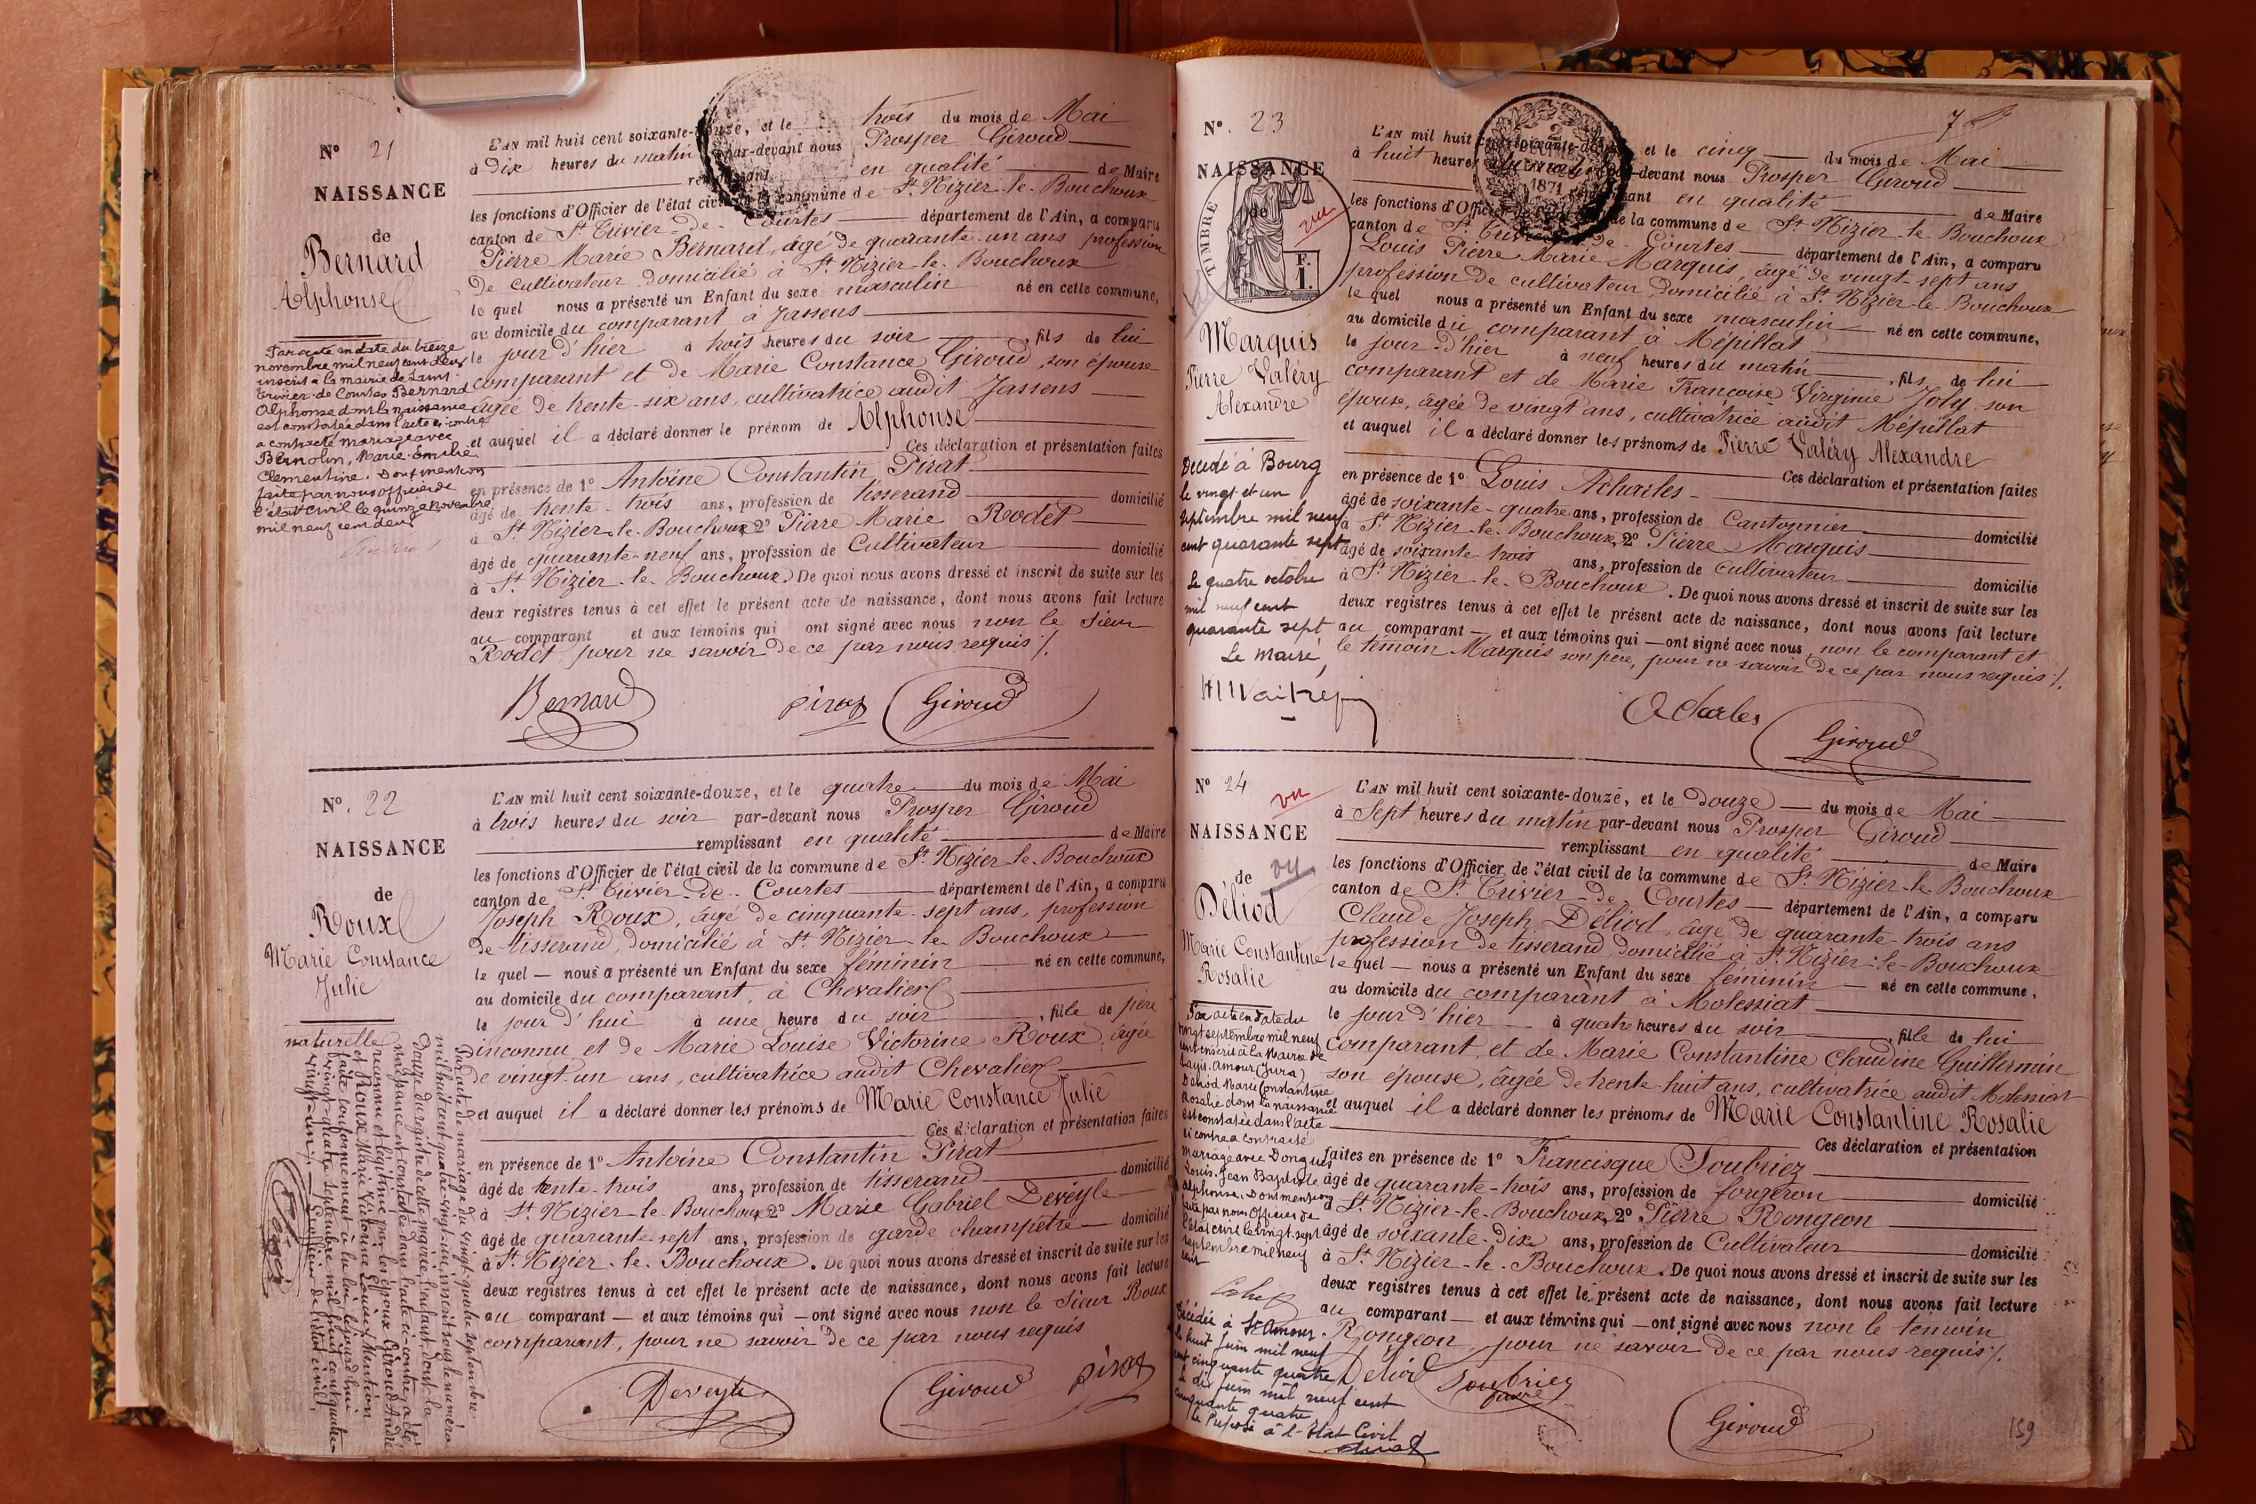 N° 21
NAISSANCE
de
Bernard
Alphonse
Par acte en date du treize
novembre mil neuf cent deux
inscrit à la mairie de Saint
Trivier de Courtes Bernard
Alphonse dont la naissance
est constatée dans l'acte ci-contre
a contracté mariage avec
Marie Emélie
Clémentine. Dont mention
faite par nous officier de
l'état civil le quinze novembre
mil neuf cent deux
L'AN mil huit cent soixante-douze, et le trois du mois de Mai
à Dix heures du matin par-devant nous Prosper Giroud
remplissant en qualité de Maire
les fonctions d'Officier de l'état civil de la commune de St Nizier-le-Bouchoux
canton de St Trivier-de-Courtes département de l'Ain, a comparu
Pierre Marie Bernard, âgé de quarante-un ans profession
de cultivateur domicilié à St Nizier-le-Bouchoux
le quel nous a présenté un Enfant du sexe masculin né en cette commune,
au domicile du comparant à Jassens
le jour d'hier à trois heures du soir , fils de lui
comparant et de Marie Constance Giroud, son épouse
âgée de trente-six ans, cultivatrice audit Jassens
et auquel il a déclaré donner le prénom de Alphonse
Ces déclaration et présentation faites
en présence de 1° Antoine Constantin Pirat
âgé de trente-trois ans, profession de tisserand domicilié
à St Nizier-le-Bouchoux, 2° Pierre Marie Rodet
âgé de quarante-neuf ans, profession de Cultivateur domicilié
à St Nizier-le-Bouchoux. De quoi nous avons dressé et inscrit de suite sur les
deux registres tenus à cet effet le présent acte de naissance, dont nous avons fait lecture
au comparant et aux témoins qui ont signé avec nous non le Sieur
Rodet pour ne savoir de ce par nous requis /.
Bernard Pirat Giroud
N° 22
NAISSANCE
de
Roux
Marie Constance
Julie
naturelle
Par acte de mariage du vingt-quatre septembre
mil huit cent quatre-vingt-un, inscrit sous le numéro
douze du registre de cette mairie, l'enfant, dont la
naissance est constatée dans l'acte ci-contre, a été
reconnue et légitimée par les époux Giroud André
et Roux Marie Victorine Louise. Mention
faite conformément à la loi, le jourd'hui
vingt-quatre septembre mil huit cent quatre-
vingt-un /. L'officier de l'état civil,
L'AN mil huit cent soixante-douze, et le quatre du mois de Mai
à trois heures du soir par-devant nous Prosper Giroud
remplissant en qualité de Maire
les fonctions d'Officier de l'état civil de la commune de St Nizier-le-Bouchoux
canton de St Trivier-de-Courtes département de l'Ain, a comparu
Joseph Roux, âgé de cinquante-sept ans, profession
de tisserand, domicilié à St Nizier-le-Bouchoux
le quel — nous a présenté un Enfant du sexe féminin né en cette commune,
au domicile du comparant, à Chevalier
le jour d'hui à une heure du soir , fille de père
inconnu et de Marie Louise Victorine Roux, âgée
de vingt-un ans, cultivatrice audit Chevalier
et auquel il a déclaré donner les prénoms de Marie Constance Julie
Ces déclaration et présentation faites
en présence de 1° Antoine Constantin Pirat
âgé de trente-trois ans, profession de tisserand domicilié
à St Nizier-le-Bouchoux, 2° Marie Gabriel Deveyle
âgé de quarante-sept ans, profession de garde champêtre domicilié
à St Nizier-le-Bouchoux. De quoi nous avons dressé et inscrit de suite sur les
deux registres tenus à cet effet le présent acte de naissance, dont nous avons fait lecture
au comparant — et aux témoins qui — ont signé avec nous non le Sieur Roux
comparant, pour ne savoir de ce par nous requis
Deveyle Giroud Pirat
7
N° 23
NAISSANCE
de
TIMBRE
F.
1.
vu
Marquis
Pierre Valéry
Alexandre
Décédé à Bourg
le vingt et un
septembre mil neuf
cent quarante sept
Le quatre octobre
mil neuf cent
quarante sept
Le Maire,
2
1871
L'AN mil huit cent soixante-douze, et le cinq du mois de Mai
à huit heures du matin par-devant nous Prosper Giroud
remplissant en qualité de Maire
les fonctions d'Officier de l'état civil de la commune de St Nizier-le-Bouchoux
canton de St Trivier-de-Courtes département de l'Ain, a comparu
Louis Pierre Marie Marquis, âgé de vingt-sept ans
profession de cultivateur domicilié à St Nizier-le-Bouchoux
le quel nous a présenté un Enfant du sexe masculin né en cette commune,
au domicile du comparant à Mépillat
le jour d'hier à neuf heures du matin , fils de lui
comparant et de Marie Françoise Virginie Joly son
épouse, âgée de vingt ans, cultivatrice audit Mépillat
et auquel il a déclaré donner les prénoms de Pierre Valéry Alexandre
Ces déclaration et présentation faites
en présence de 1° Louis Acharles
âgé de soixante-quatre ans, profession de Cantonnier domicilié
à St Nizier-le-Bouchoux, 2° Pierre Marquis
âgé de soixante-trois ans, profession de cultivateur domicilié
à St Nizier-le-Bouchoux. De quoi nous avons dressé et inscrit de suite sur les
deux registres tenus à cet effet le présent acte de naissance, dont nous avons fait lecture
au comparant — et aux témoins qui — ont signé avec nous, non le comparant et
le témoin Marquis son père, pour ne savoir de ce par nous requis /.
Acharles
Giroud
N° 24
vu
NAISSANCE
de
vu
Déliod
Marie Constantine
Rosalie
Par acte en date du
vingt septembre mil neuf
cent inscrit à la Mairie de
Saint-Amour (Jura)
Déliod Marie Constantine
Rosalie dont la naissance
est constatée dans l'acte
ci contre a contracté
mariage avec Donguer
Louis Jean Baptiste
Alphonse. Dont mention
faite par nous Officier de
l'état civil le vingt sept
septembre mil neuf
cent
Décédée à St Amour
le huit Juin mil neuf
cent cinquante quatre
le dix Juin mil neuf cent
cinquante quatre
le Préposé à l'Etat Civil
L'AN mil huit cent soixante-douze, et le douze du mois de Mai
à Sept heures du matin par-devant nous Prosper Giroud
remplissant en qualité de Maire
les fonctions d'Officier de l'état civil de la commune de St Nizier-le-Bouchoux
canton de St Trivier-de-Courtes département de l'Ain, a comparu
Claude Joseph Déliod, âgé de quarante-trois ans
profession de tisserand domicilié à St Nizier-le-Bouchoux
le quel — nous a présenté un Enfant du sexe féminin né en cette commune,
au domicile du comparant à Molessiat
le jour d'hier à quatre heures du soir , fille de lui
comparant et de Marie Constantine Claudine Guillermin
son épouse, âgée de trente-huit ans, cultivatrice audit Molessiat
et auquel il a déclaré donner les prénoms de Marie Constantine Rosalie
Ces déclaration et présentation
faites en présence de 1° Francisque Soubriez
âgé de quarante-trois ans, profession de forgeron domicilié
à St Nizier-le-Bouchoux, 2° Pierre Rongeon
âgé de soixante-dix ans, profession de Cultivateur domicilié
à St Nizier-le-Bouchoux. De quoi nous avons dressé et inscrit de suite sur les
deux registres tenus à cet effet le présent acte de naissance, dont nous avons fait lecture
au comparant — et aux témoins qui — ont signé avec nous non le témoin
Rongeon pour ne savoir de ce par nous requis /.
Déliod Soubriez
Giroud
159